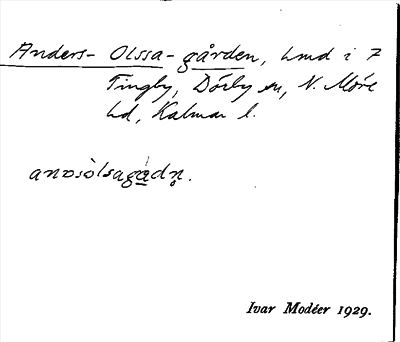 Anders-Olssa-gården, lmd i 7
Tingby, Dörby sn, N. Möre
hd, Kalmar l.
anəsòlsagádn̥.
Ivar Modéer 1929.